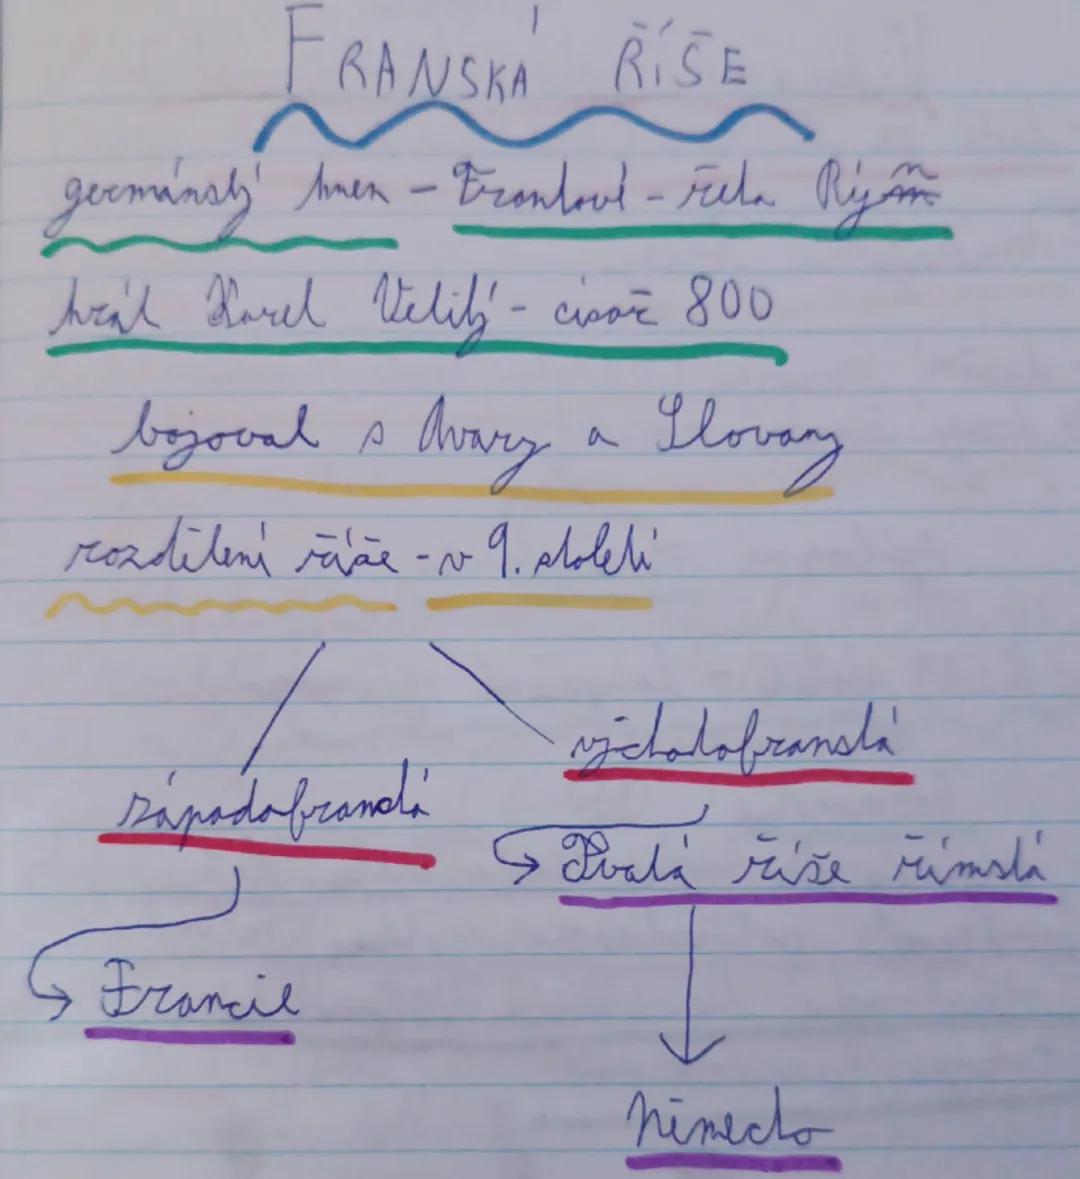 FRANSKÁ ŘÍŠE
germánský kmen - Frankové - řeka Rýn
král Karel Veliký - císař 800
bojoval s Avary a Slovany
rozdělení říše - v 9. století
východofranská
západofranská
Svatá říše římská
Francie
Německo